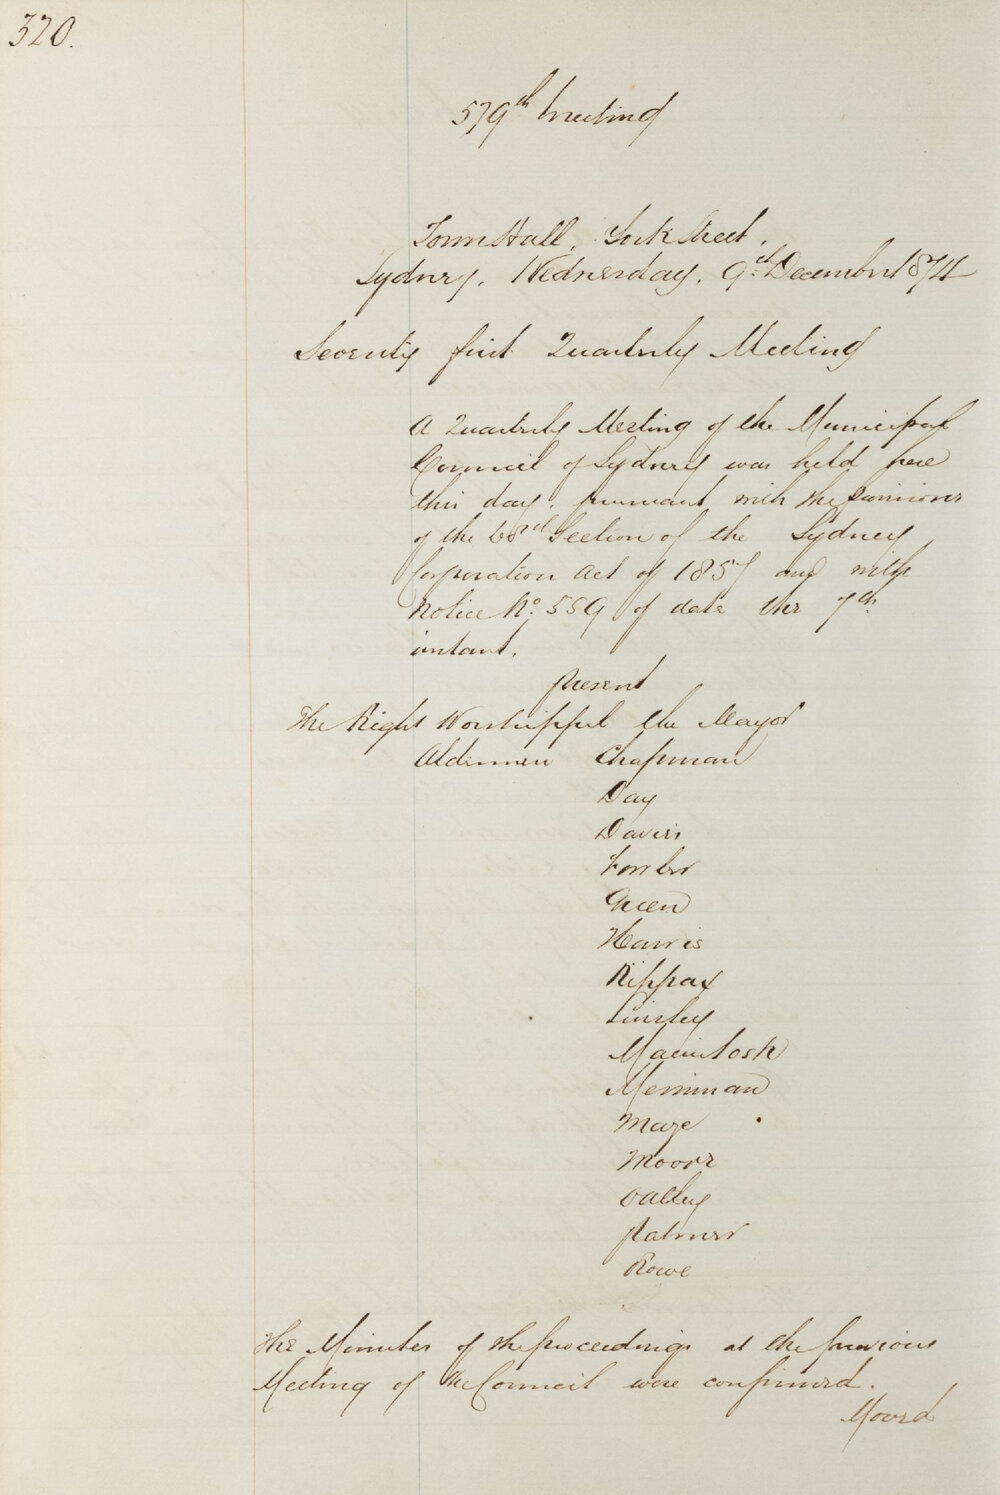 320.
579th Meeting
Town Hall, York Street,
Sydney, Wednesday, 9th December 1874
Seventy first Quarterly Meeting
A Quarterly Meeting of the Municipal
Council of Sydney was held here
this day, pursuant with the provisions
of the 68th Section of the Sydney
Corporation Act of 1857 and with
Notice No. 559 of date the 7th
instant.
present
The Right Worshipful the Mayor
Aldermen Chapman
Day
Davies
Fowler
Green
Harris
Kippax
Linsley
Macintosh
Merriman
Maze
Moore
Oatley
Palmer
Rowe
The Minutes of the proceedings at the previous
Meeting of the Council were confirmed.
Moved